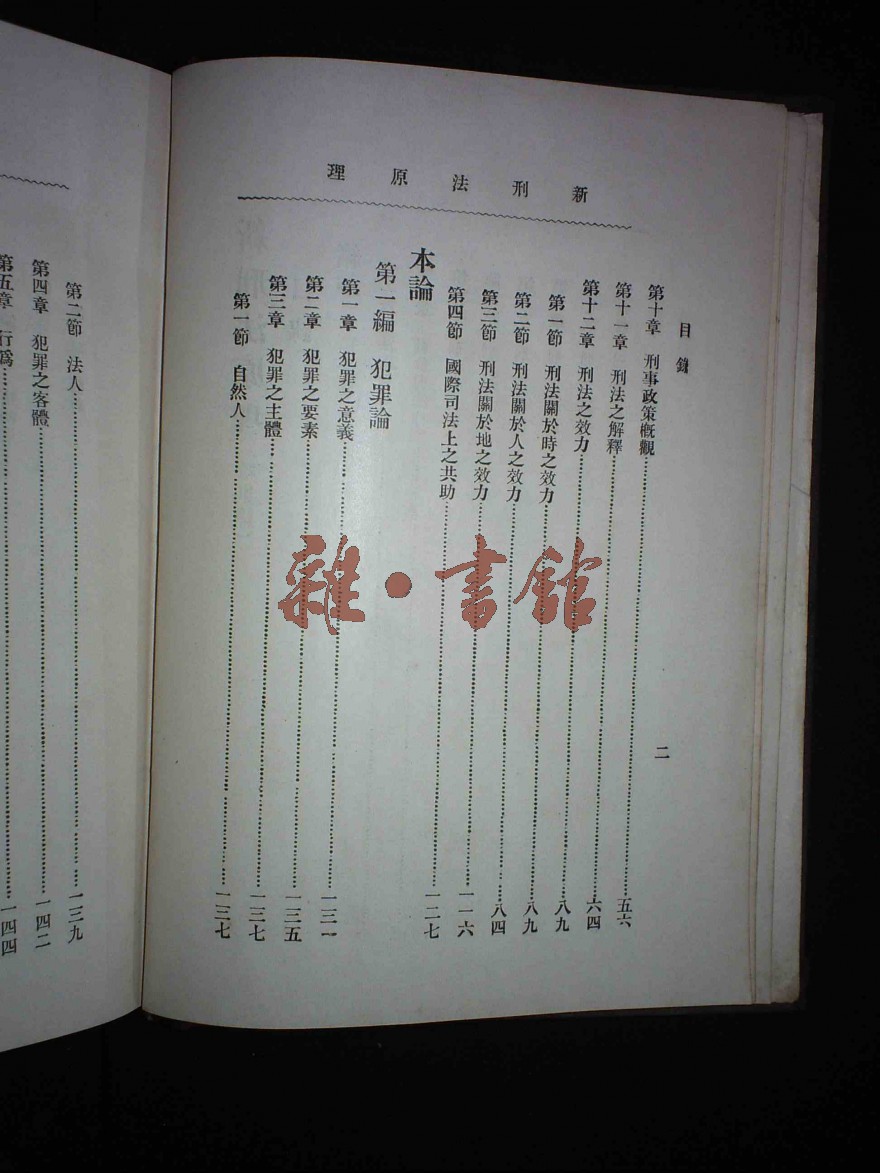 新刑法原理
目錄 二
第十章 刑事政策概觀……五六
第十一章 刑法之解釋……六四
第十二章 刑法之效力……八九
第一節 刑法關於時之效力……八九
第二節 刑法關於人之效力……八四
第三節 刑法關於地之效力……一一六
第四節 國際司法上之共助……一二七
本論
第一編 犯罪論
第一章 犯罪之意義……一三一
第二章 犯罪之要素……一三五
第三章 犯罪之主體……一三七
第一節 自然人……一三七
第二節 法人……一三九
第四章 犯罪之客體……一四二
第五章 行爲……一四四
雜·書館